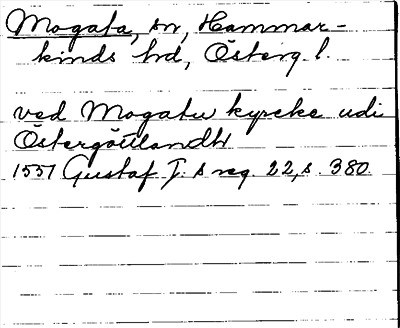 Mogata, sn, Hammar-
kinds hd, Österg.l.
ved Mogatu kyrcke udi
Östergöttlandh
1551 Gustaf I:s reg. 22, s. 380.